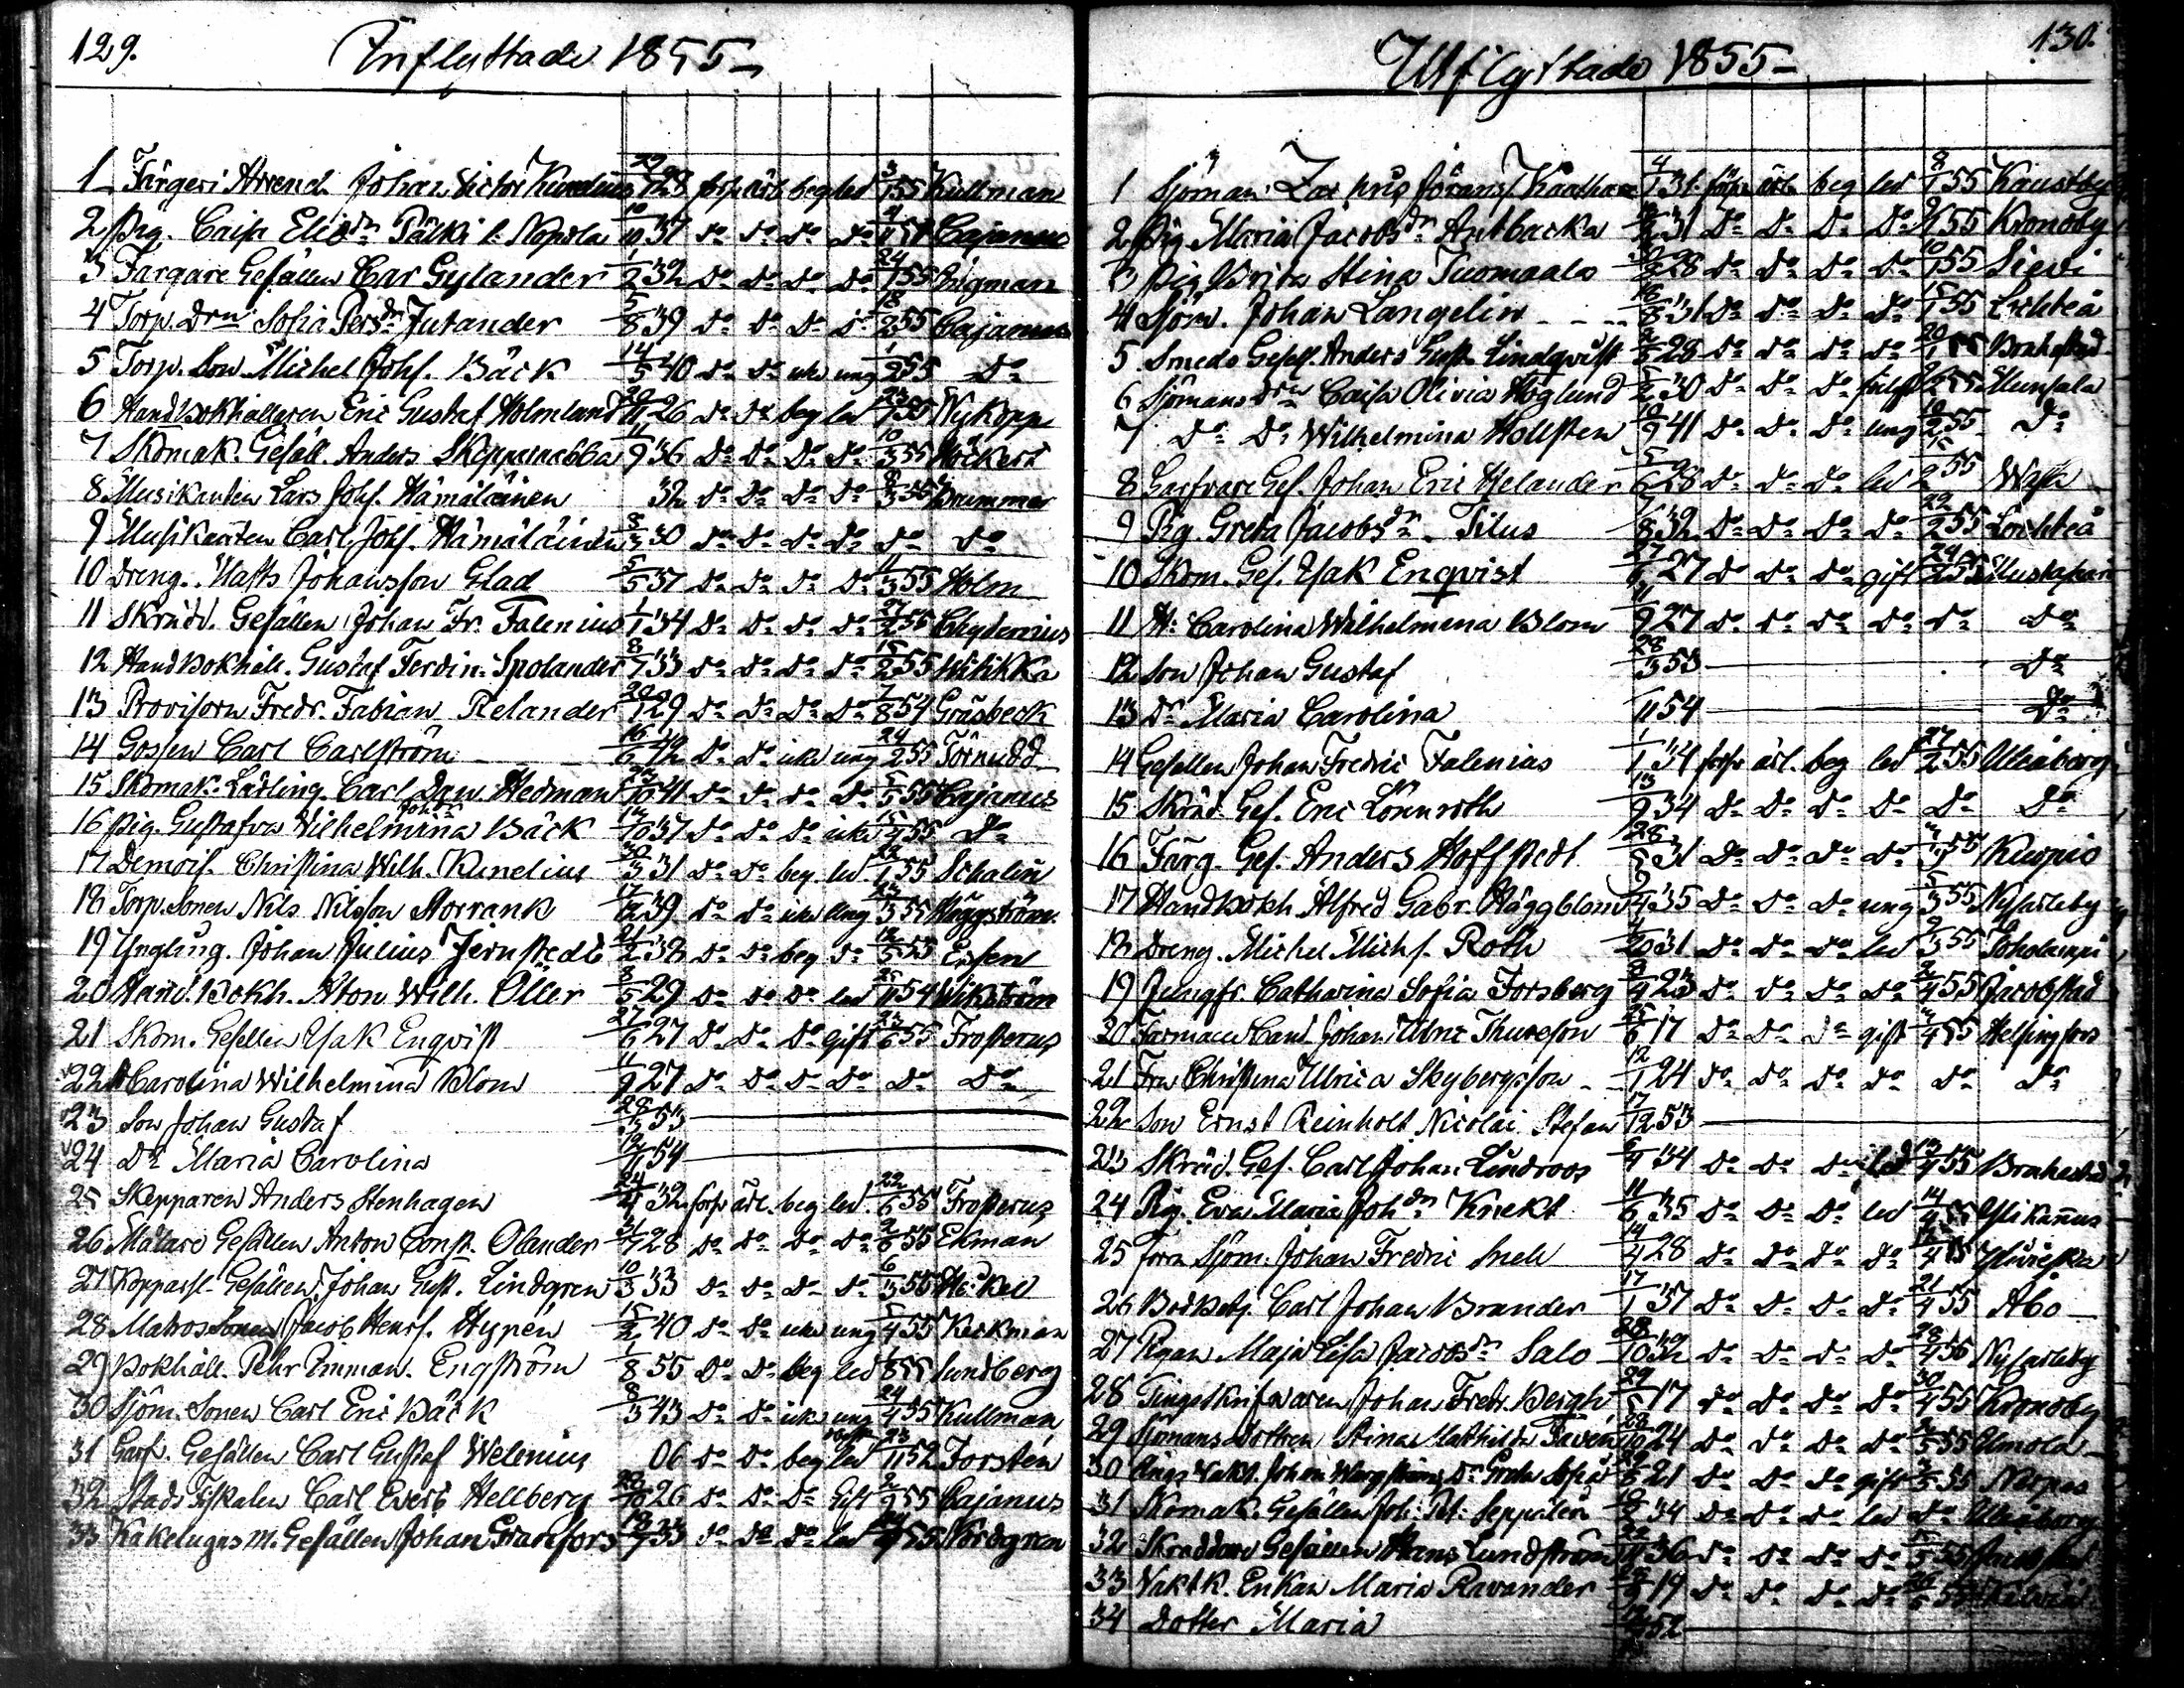 129.
Inflyttade 1855
1 Färgeri Arrend. Johan Victor Kunelius 128 förfr ärl. beg led 3/1 55 Kullman
2 Pig. Caisa Eliædr Pälki l. Nopola 10/11 37 do do do do Cajanus
3 Färgare Gesällen Car Gylander 1/2 32 do do do do 24/1 55 Pigman
4 Torp. drn Sofia Persdr Jutander 5/8 39 do do do do 18/2 55 Cajanus
5 Torp. Son Michel Johs. Bäck 14/5 40 do do icke ung 1/2 55 do
6 Handl. bokhålleren Eric Gustaf Holmlund 26 do do beg led Nykopp
7 Skomak. Gesäll. Anders Skepparabba 11/9 36 do do do do 10/3 55 Höckert
8 Musikanten Lars Johs. Hämäläinen 32 do do do do 8/3 55 Brummer
9 Musikanten Carl Johs. Hämäläinen 8/3 30 do do do do do do
10 Dreng. Matts Johansson Glad 5/5 37 do do do do 11/3 55 Holm
11 Skrädd. Gesällen Johan Fr. Falenius 1/1 34 do do do do 27/2 55 Chydenius
12 Handl. Bokhåll. Gustaf Ferdin. Spolander 8/7 33 do do do do 15/2 55
13 Provisorn Fredr. Fabian Relander 20/1 29 do do do do 7/8 54 Gräsbeck
14 Gossen Carl Carlström 16/6 42 do do icke ung 24/2 55 Törnudd
15 Skomak. Lärling. Carl Dan. Hedman 41 do do do do 5/5 55 Cajanus
16 Pig. Gustafva Wilhelmina Johsdr Bäck 37 do do do icke 15/4 55 do
17 Demois. Christina Wilh. Kunelius 30/3 31 do do beg. led 55 Schalin
18 Torp. Sonen Nils Nilsson Storrank 17 39 do do icke ung 55 Häggström
19 Yngling. Johan Julius Jernstedt 21/2 38 do do beg do 12/5 55 Essen
20 Hand. Bokh. Aton Wilh. Öller 8/5 29 do do do led 54 Wikström
21 Skom. Gesellen Isak Enqvist 27/6 27 do do do gift 23/6 55 Frosterus
22 H Carolina Wilhelmina Blom 11/9 27 do do do do do do
23 Son Johan Gustaf 28/3 53
24 Dr Maria Carolina 54
25 Skepparen Anders Stenhagen 32 förfr ärl. beg led 22/6 55 Frosterus
26 Målare Gesällen Anton Const. Olander 28 do do do do 55 Ekman
27 Kopparsl. Gesällen Johan Gust. Lindgren 10/3 33 do do do do 6/3 55
28 Matros Sonen Jacob Henrs. Hypén 15/2 40 do do icke ung 5/4 55 Keckman
29 Bokhåll. Pehr Emman. Engström 1/8 55 do do beg led Sundberg
30 Sjöm. Sonen Carl Eric Bäck 8/3 43 do do icke ung 24/4 55 Kullman
31 Garf. Gesällen Carl Gustaf Welenius 06 do do beg led 23/11 52 Forstén
32 Stads Fiskalen Carl Evert Hellberg 26 do do do Gift 2/9 55 Cajanus
33 Kakelugns m. Gesällen Johan Granfors 33 do do do led 55 Nordgren
130.
Utflyttade 1855
1 Sjöman Zachris Jöranss. Kaatharа 31 förfr ärl. beg led 8/1 55 Kaustby
2 Pig Maria Jacobsdr Antbacka 31 do do do do 9/1 55 Kronoby
3 Pig Brita Stina Tuomaala 28 do do do do 10/1 55 Sievi
4 Sjöm. Johan Langelin 16/8 31 do do do do 15/1 55 Lochteå
5 Smeds Gesell. Anders Gust. Lindqvist 28 do do do do 20/1 55 Brahestad
6 Sjömans drn Caisa Olivia Höglund 30 do do do Munsala
7 do do Wilhelmina Hollsten 10/9 41 do do do ung 2 55 do
8 Garfvare Ges. Johan Eric Helander 5/6 28 do do do led 15/2 55 Wasa
9 Pig. Greta Jacobsdr Tilus 7/8 32 do do do do 22/2 55 Lochteå
10 Skom. Ges. Isak Enqvist 27/6 27 do do do gift 24/2 55
11 H: Carolina Wilhelmina Blom 11/9 27 do do do do do do
12 Son Johan Gustaf 28/3 53 do
13 Dr Maria Carolina 54 do
14 Gesellen Johan Fredric Falenius 1/1 34 förfr ärl. beg led 27/2 55 Uleåborg
15 Skräd. Ges. Eric Lönnroth 13/9 34 do do do do do do
16 Färg. Ges. Anders Hoffstedt 28 31 do do do do 55 Kuopio
17 Hand. bokh. Alfred Gabr. Häggblom 9/4 35 do do do ung 5/3 55 Nykarleby
18 Dreng. Michel Michs. Roth 31 do do do led 9/3 55 Toholampi
19 Jungfr. Catharina Sofia Forsberg 23 do do do do 2/4 55 Jacobstad
20 Farmaceu Cand. Johan Ulric Thureson 25/6 17 do do do gift 4 55 Helsingfors
21 Fru Christina Ulrica Skybergsson 12/1 24 do do do do do do
22 Son Ernst Reinholt Nicolai Stefan 17/12 53
23 Skräd. Ges. Carl Johan Lindroos 34 do do do led 13/4 55 Brahestad
24 Pig. Eva Maria Johdr Knekt 11/6 35 do do do led 14/4 55 Ylikannus
25 forn Sjöm. Johan Fredric Sneck 14/4 28 do do do do Ylivieska
26 Bodbetj. Carl Johan Brander 17/1 37 do do do do 21/4 55 Åbo
27 Pigan Maja Lisa Jacobsdr Salo 28/10 32 do do do do Nykarleby
28 Tingskrifvaren Johan Fredr. Bergh 29 17 do do do do 30/4 55 Kronoby
29 Sjömans Dottren Stina Mathilda 24 do do do do 55
30 Greta Sofia 21 do do do gift 55 Närpes
31 Skomak. Gesällen Joh: Pet: Seppälin 34 do do do led do Uleåborg
32 Skräddare Gesällen Hans Lundström 36 do do do do 5/5 55
33 Vaktk. Enkan Maria Ravander 19 do do do do 55
34 Dotter Maria 52